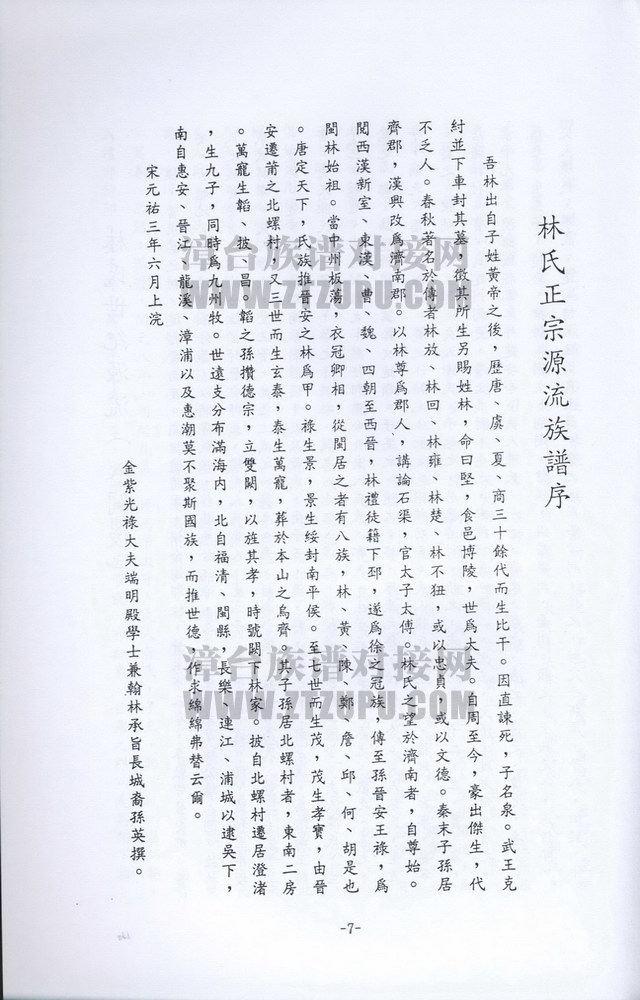 林氏正宗源流族譜序
吾林出自子姓黃帝之後，歷唐、虞、夏、商三十餘代而生比干。因直諫死，子名泉。武王克
紂並下車封其墓，徵其所生另賜姓林，命曰堅，食邑博陵，世爲大夫。自周至今，豪出傑生，代
不乏人。春秋著名於傳者林放、林回、林雍、林楚、林不狃，或以忠貞，或以文德。秦末子孫居
齊郡，漢興改爲濟南郡。以林尊爲郡人，講論石渠，官太子太傅。林氏之望於濟南者，自尊始。
閱西漢新室、東漢、曹、魏、四朝至西晉，林禮徒籍下邳，遂爲徐之冠族，傳至孫晉安王祿，爲
閩林始祖。當中州板蕩，衣冠卿相，從閩居之者有八族，林、黃、陳、鄭、詹、邱、何、胡是也
。唐定天下，氏族推晉安之林爲甲。祿生景，景生綏封南平侯。至七世而生茂，茂生孝寶，由晉
安遷莆之北螺村，又三世而生玄泰，泰生萬寵，葬於本山之烏齊。其子孫居北螺村者，東南二房
。萬寵生韜、披、昌。韜之孫攢德宗，立雙闕，以旌其孝，時號闕下林家。披自北螺村遷居澄渚
，生九子，同時爲九州牧。世遠支分布滿海內，北自福清、閩縣，長樂、連江、浦城以逮吳下，
南自惠安、晉江、龍溪、漳浦以及惠潮莫不聚斯國族，而推世德，作求綿綿弗替云爾。
宋元祐三年六月上浣
金紫光祿大夫端明殿學士兼翰林承旨長城裔孫英撰。
-7-
漳台族谱对接网
WWW.ZTZUPU.COM
漳台族谱对接网
WWW.ZTZUPU.COM